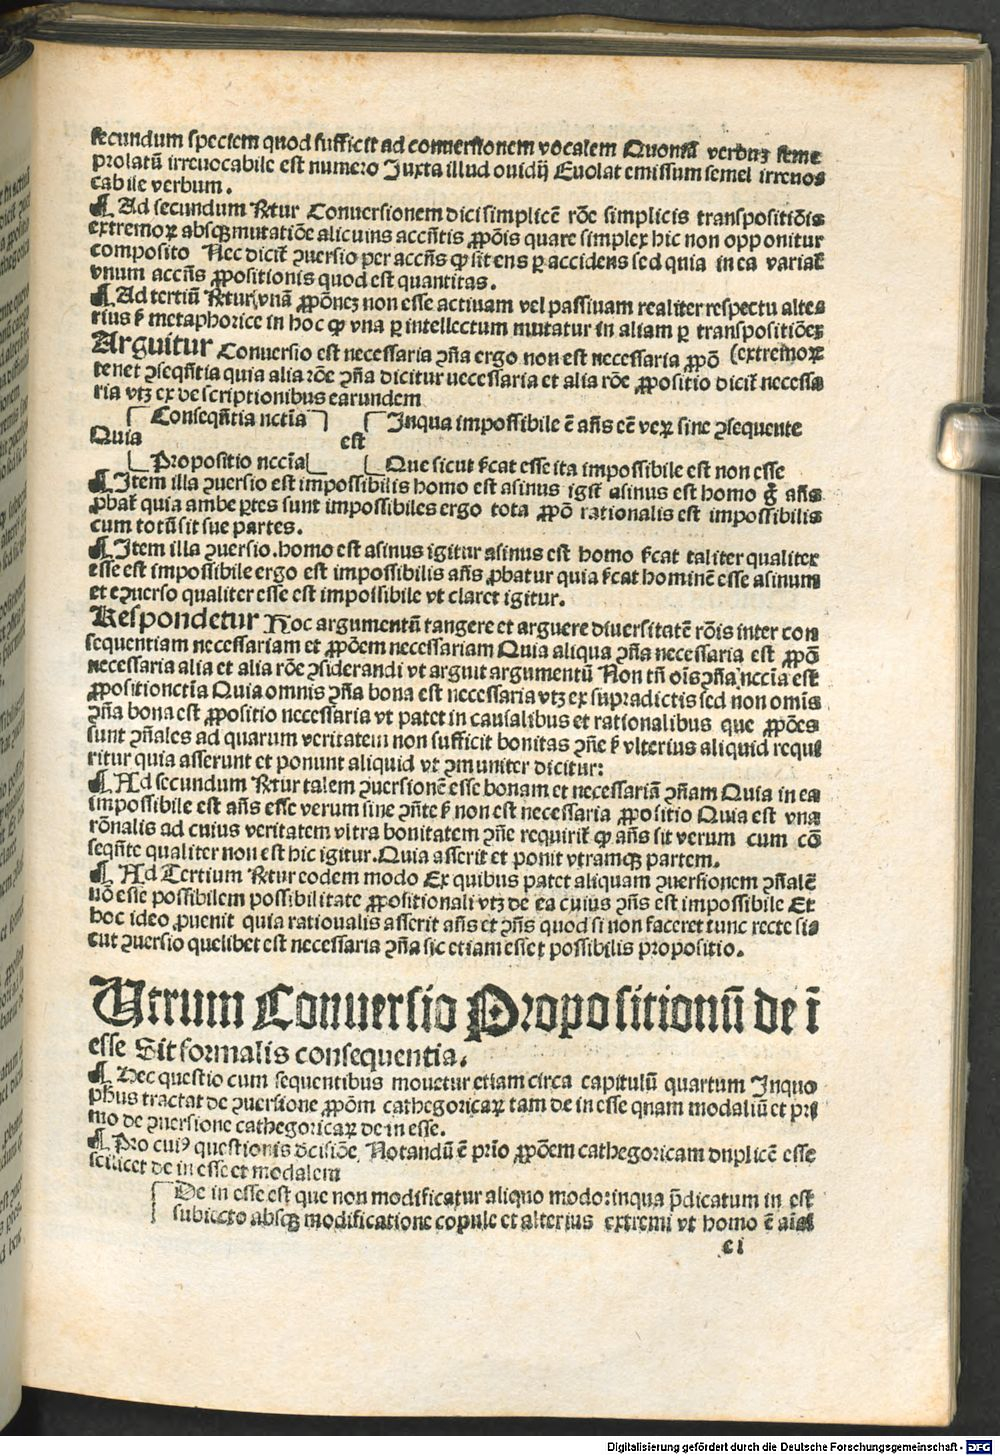 secundum speciem quod sufficit ad conuersionem vocalem Quoniā verbuꝫ seme
prolatū irreuocabile est numero Juxta illud ouidij Euolat emissum semel irreuo⸗
cabile verbum.
¶ Ad secundum Rn̄tur Conuersionem dici simplicē rōe simplicis transpositiōis
extremoꝝ absqꝫ mutatiōe alicuius accn̄tis ꝓpōis quare simplex hic non opponitur
composito Nec dicit̄ ꝯuersio per accn̄s ꝙ sit ens ꝑ accidens sed quia in ea variat̄
vnum accn̄s ꝓpositionis quod est quantitas.
¶ Ad tertiū Rn̄tur vnā ꝓpōneꝫ non esse actiuam vel passiuam realiter respectu alte⸗
rius ſꝫ metaphorice in hoc ꝙ vna ꝑ intellectum mutatur in aliam ꝑ transpositiōeꝫ
Arguitur Conuersio est necessaria ꝯn̄a ergo non est necessaria ꝓpō (extremoꝝ
tenet ꝯseqn̄tia quia alia rōe ꝯn̄a dicitur necessaria et alia rōe ꝓpositio dicit̄ necessa
ria vtꝫ ex descriptionibus earundem
Conseqn̄tia nctīa Inqua impossibile ē an̄s eē veꝝ sine ꝯsequente
Quia est
Propositio nccīa Que sicut sīcat esse ita impossibile est non esse
¶ Item illa ꝯuersio est impossibilis homo est asinus igit̄ asinus est homo g̊ an̄s
ꝓbat̄ quia ambe ꝑtes sunt impossibiles ergo tota ꝓpō rationalis est impossibilis
cum totū sit sue partes.
¶ Item illa ꝯuersio. homo est asinus igitur asinus est homo sīcat taliter qualiter
esse est impossibile ergo est impossibilis an̄s ꝓbatur quia sīcat hominē esse asinum
et eꝯuerso qualiter esse est impossibile vt claret igitur.
Respondetur Hoc argumentū tangere et arguere diuersitatē rōis inter con
sequentiam necessariam et ꝓpōem necessariam Quia aliqua ꝯn̄a necessaria est ꝓpō
necessaria alia et alia rōe ꝯsiderandi vt arguit argumentū Non tn̄ oīs ꝯn̄a nccīa est
ꝓpositio nctīa Quia omnis ꝯn̄a bona est necessaria vtꝫ ex supradictis sed non omīs
ꝯn̄a bona est ꝓpositio necessaria vt patet in causalibus et rationalibus que ꝓpōes
sunt ꝯn̄ales ad quarum veritatem non sufficit bonitas ꝯn̄e ſꝫ vlterius aliquid requi
ritur quia asserunt et ponunt aliquid vt ꝯmuniter dicitur:
¶ Ad secundum Rn̄tur talem ꝯuersionē esse bonam et necessariā ꝯn̄am Quia in ea
impossibile est an̄s esse verum sine ꝯn̄te ſꝫ non est necessaria ꝓpositio Quia est vna
rōnalis ad cuius veritatem vltra bonitatem ꝯn̄e requirit̄ ꝙ an̄s sit verum cum cō
seqn̄te qualiter non est hic igitur. Quia asserit et ponit vtramqꝫ partem.
¶ Ad Tertium Rn̄tur eodem modo Ex quibus patet aliquam ꝯuersionem ꝯn̄alē
nō esse possibilem possibilitate ꝓpositionali vtꝫ de ea cuius ꝯn̄s est impossibile Et
hoc ideo ꝓuenit quia rationalis asserit an̄s et ꝯn̄s quod si non faceret tunc recte si⸗
cut ꝯuersio quelibet est necessaria ꝯn̄a sic etiam esset possibilis propositio.
Utrum Conuersio Propositionū de ī
esse Sit formalis consequentia.
¶ Hec questio cum sequentibus mouetur etiam circa capitulū quartum Inquo
ph̄us tractat de ꝯuersione ꝓpōm cathegoricaꝝ tam de in esse quam modaliū et pri
mo de ꝯuersione cathegoricaꝝ de in esse.
¶ Pro cuiꝰ questionis dcisiōe. Notandū ē prīo ꝓpōem cathegoricam duplicē esse
scilicet de in esse et modalem
De in esse est que non modificatur aliquo modo: inqua p̄dicatum in est
subiecto absqꝫ modificatione copule et alterius extremi vt homo ē aīal
c i
Digitalisierung gefördert durch die Deutsche Forschungsgemeinschaft - DFG